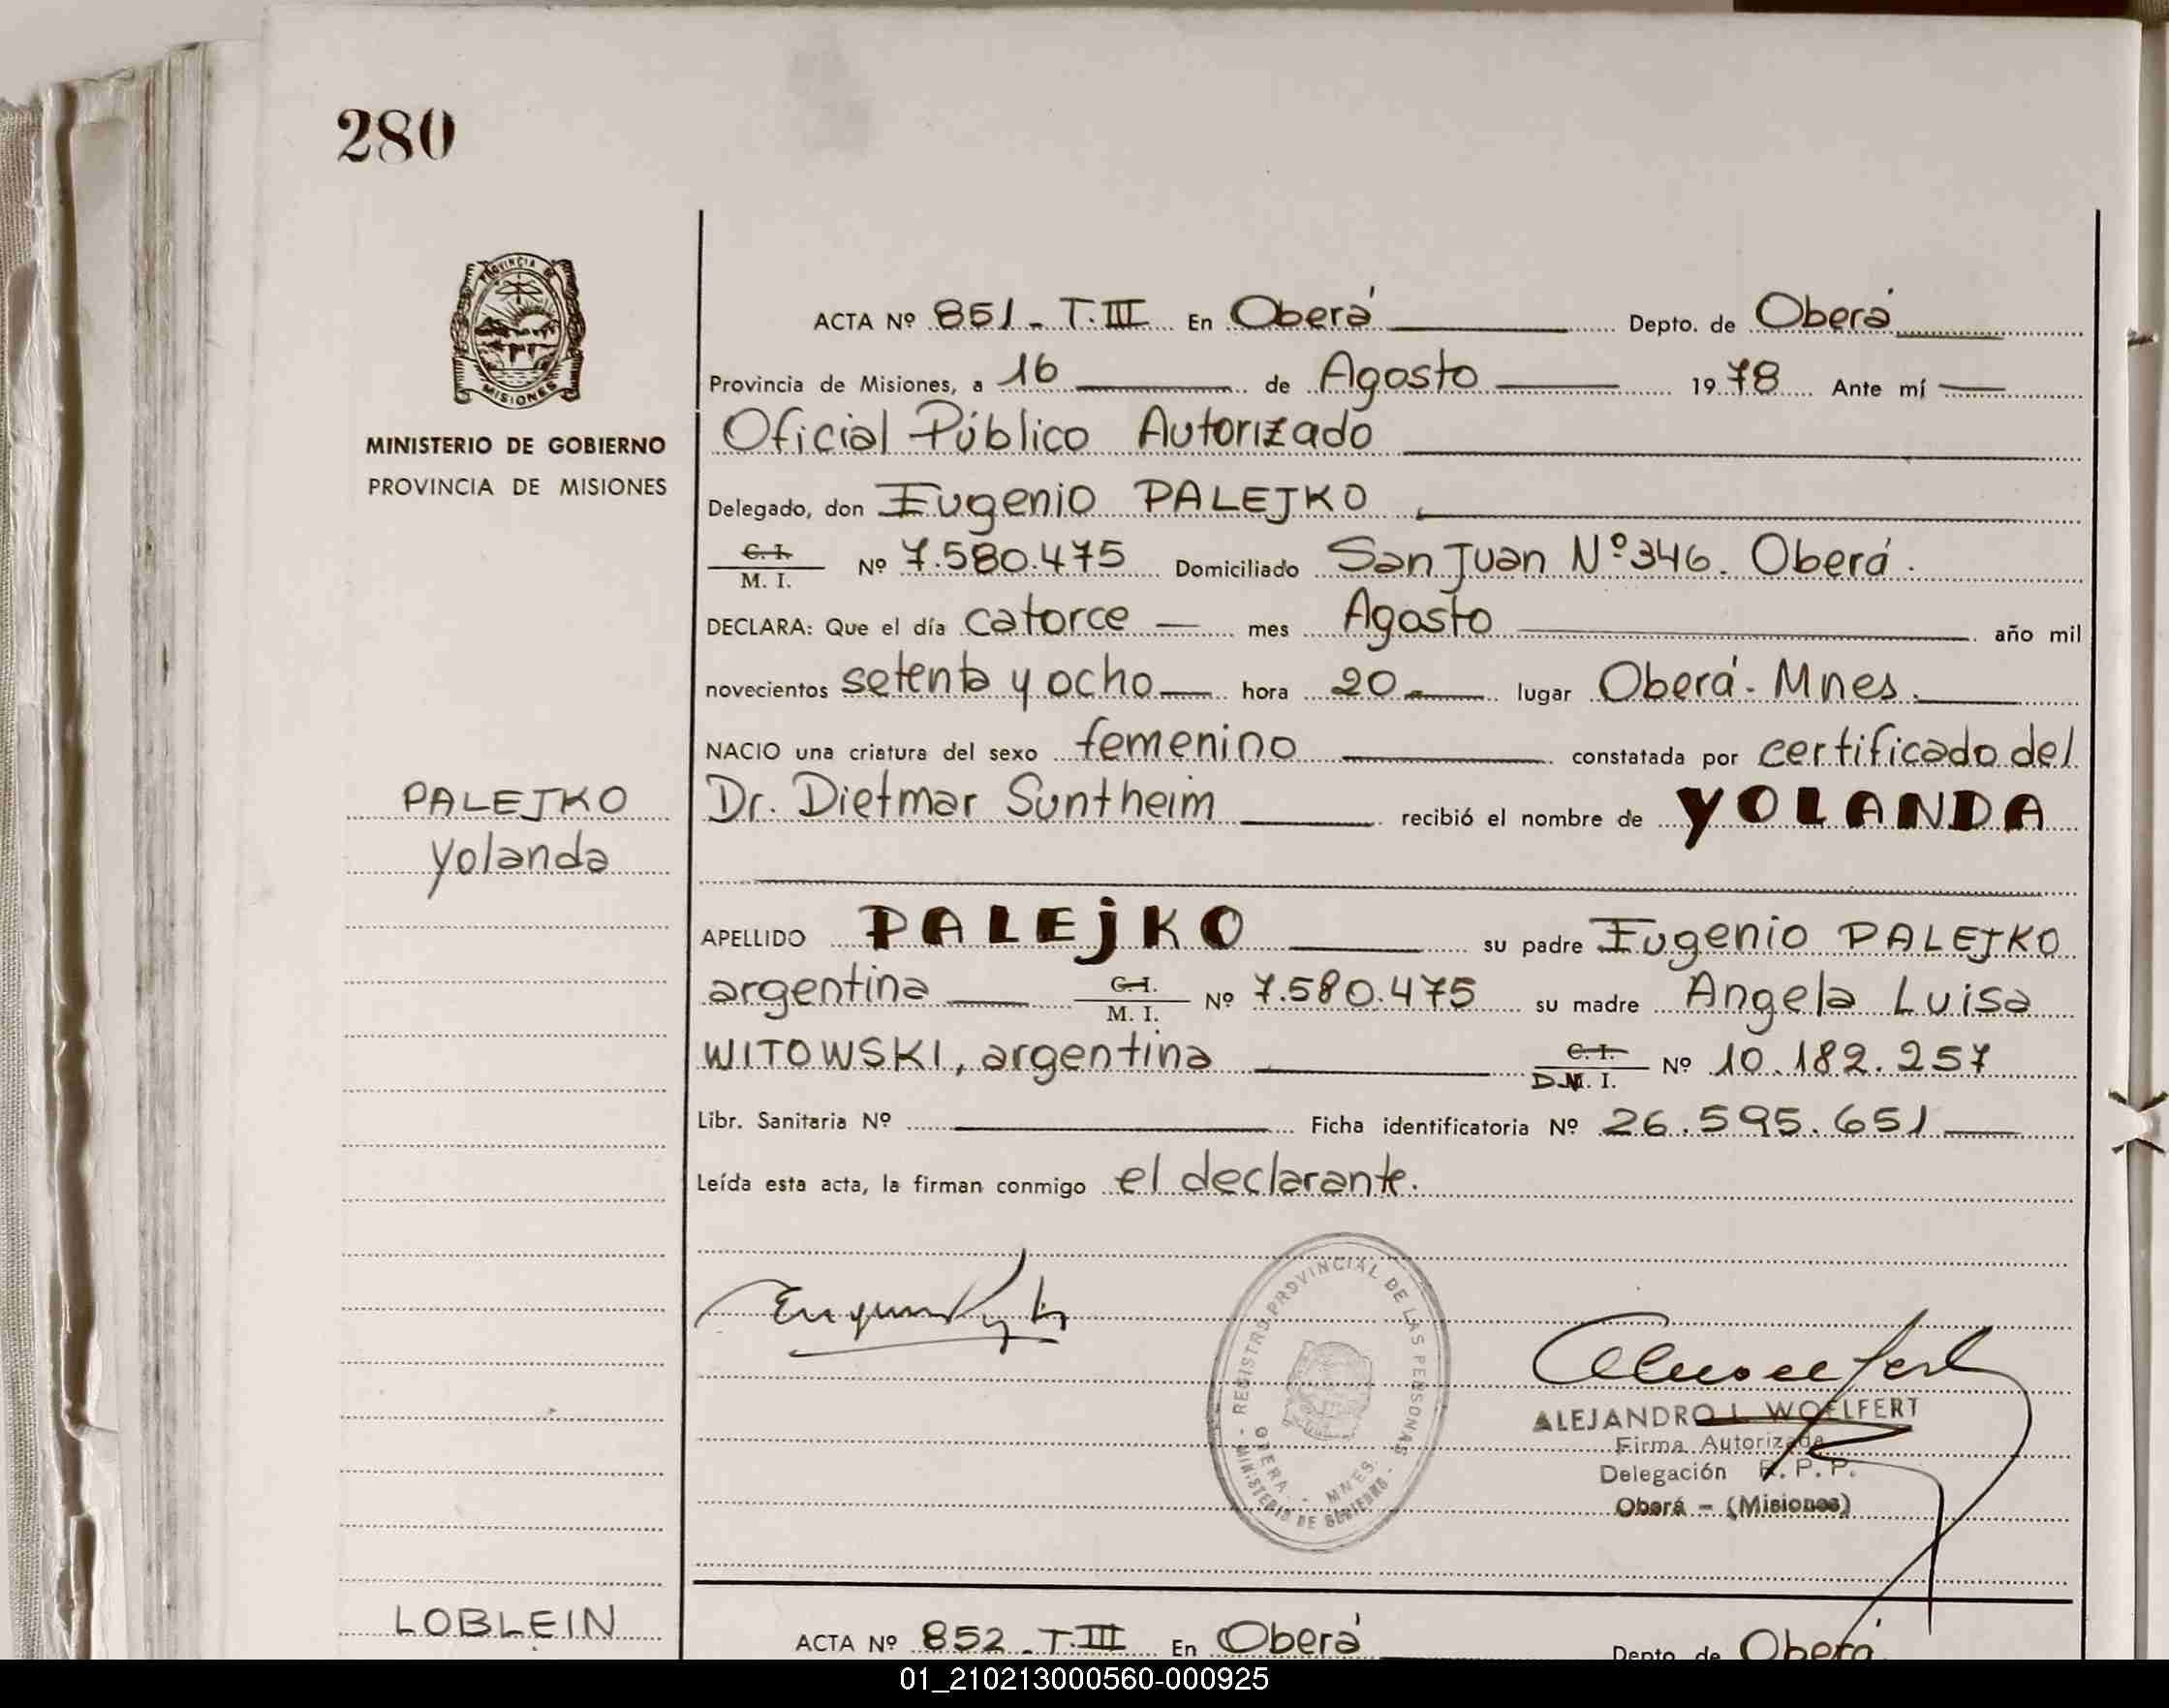 280
PROVINCIA DE
MISIONES
MINISTERIO DE GOBIERNO
PROVINCIA DE MISIONES
ACTA Nº 851 - T. III En Oberá Depto. de Oberá
Provincia de Misiones, a 16 de Agosto 1978 Ante mí
Oficial Público Autorizado
Delegado, don Eugenio PALEJKO
C. I.
M. I. Nº 7.580.475 Domiciliado San Juan Nº 346. Oberá.
DECLARA: Que el día catorce mes Agosto año mil
novecientos setenta y ocho hora 20 lugar Oberá - Mnes.
NACIO una criatura del sexo femenino constatada por certificado del
PALEJKO
Yolanda
Dr. Dietmar Suntheim recibió el nombre de YOLANDA
APELLIDO PALEjKO su padre Eugenio PALEJKO
argentina C. I.
M. I. Nº 7.580.475 su madre Angela Luisa
WITOWSKI, argentina C. I.
D.N. I. Nº 10.182.257
Libr. Sanitaria Nº Ficha identificatoria Nº 26.595.651
Leída esta acta, la firman conmigo el declarante.
- REGISTRO PROVINCIAL DE LAS PERSONAS -
OBERA - MNES.
MINISTERIO DE GOBIERNO
ALEJANDRO L. WOELFERT
Firma Autorizada
Delegación R. P. P.
Oberá - (Misiones)
LOBLEIN
ACTA Nº 852 - T. III En Oberá Depto. de Oberá
01_210213000560-000925